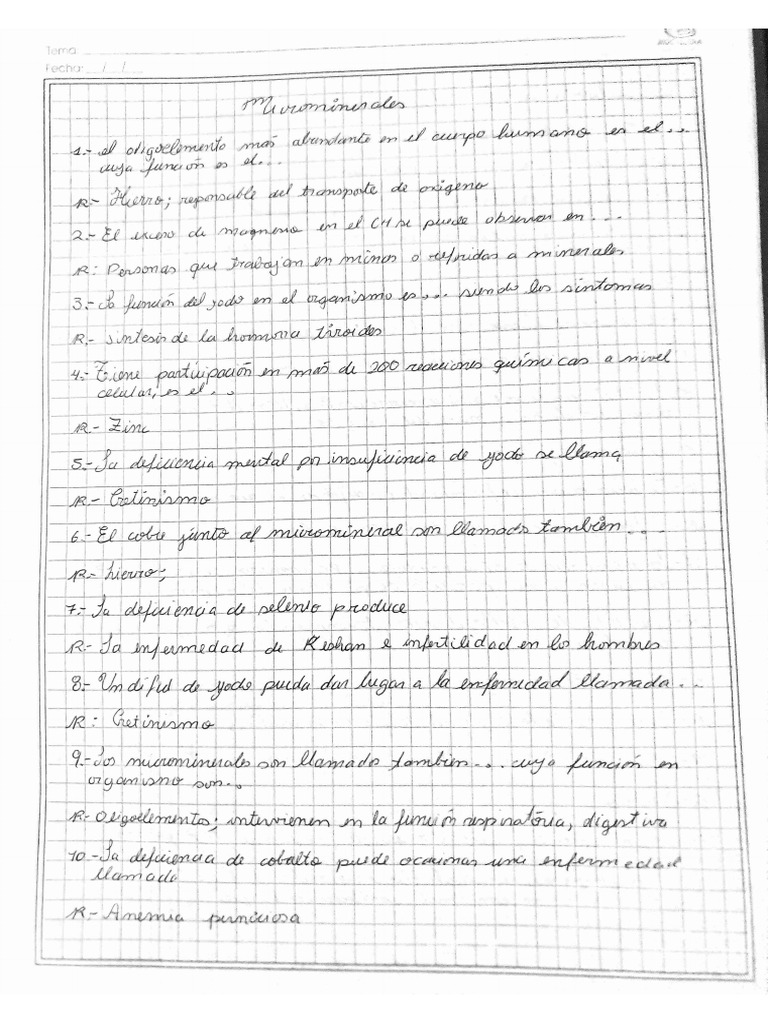 Tema
Fecha: / /
Microminerales
1.- el oligoelemento más abundante en el cuerpo humano es el...
cuya función es el...
R.- Hierro; reponsable del transporte de oxigeno
2.- El exceso de magneso en el CH se puede observar en...
R: Personas que trabajan en minas o refridas a minerales
3.- La función del yodo en el organismo es... siendo los sintomas
R.- sintesis de la hormona tiroides
4.- Tiene participación en más de 200 reacciones químicas a nivel
celular, es el...
R.- Zinc
5.- La deficiencia mental por insuficiencia de yodo se llama
R.- Cretinismo
6.- El cobre junto al micromineral son llamados también...
R.- hierro;
7.- La deficiencia de selenio produce
R.- La enfermedad de Keshan e infertilidad en lo hombres
8.- Un dificil de yodo pueda dar lugar a la enfermedad llamada...
R: Cretinismo
9.- Los microminerales son llamados tambien... cuya función en
organismo son...
R.- Oligoelementos; intervienen en la función respiratória, digestiva
10.- La deficiencia de cobalto puede ocacionar una enfermedad
llamada
R.- Anemia perniciosa